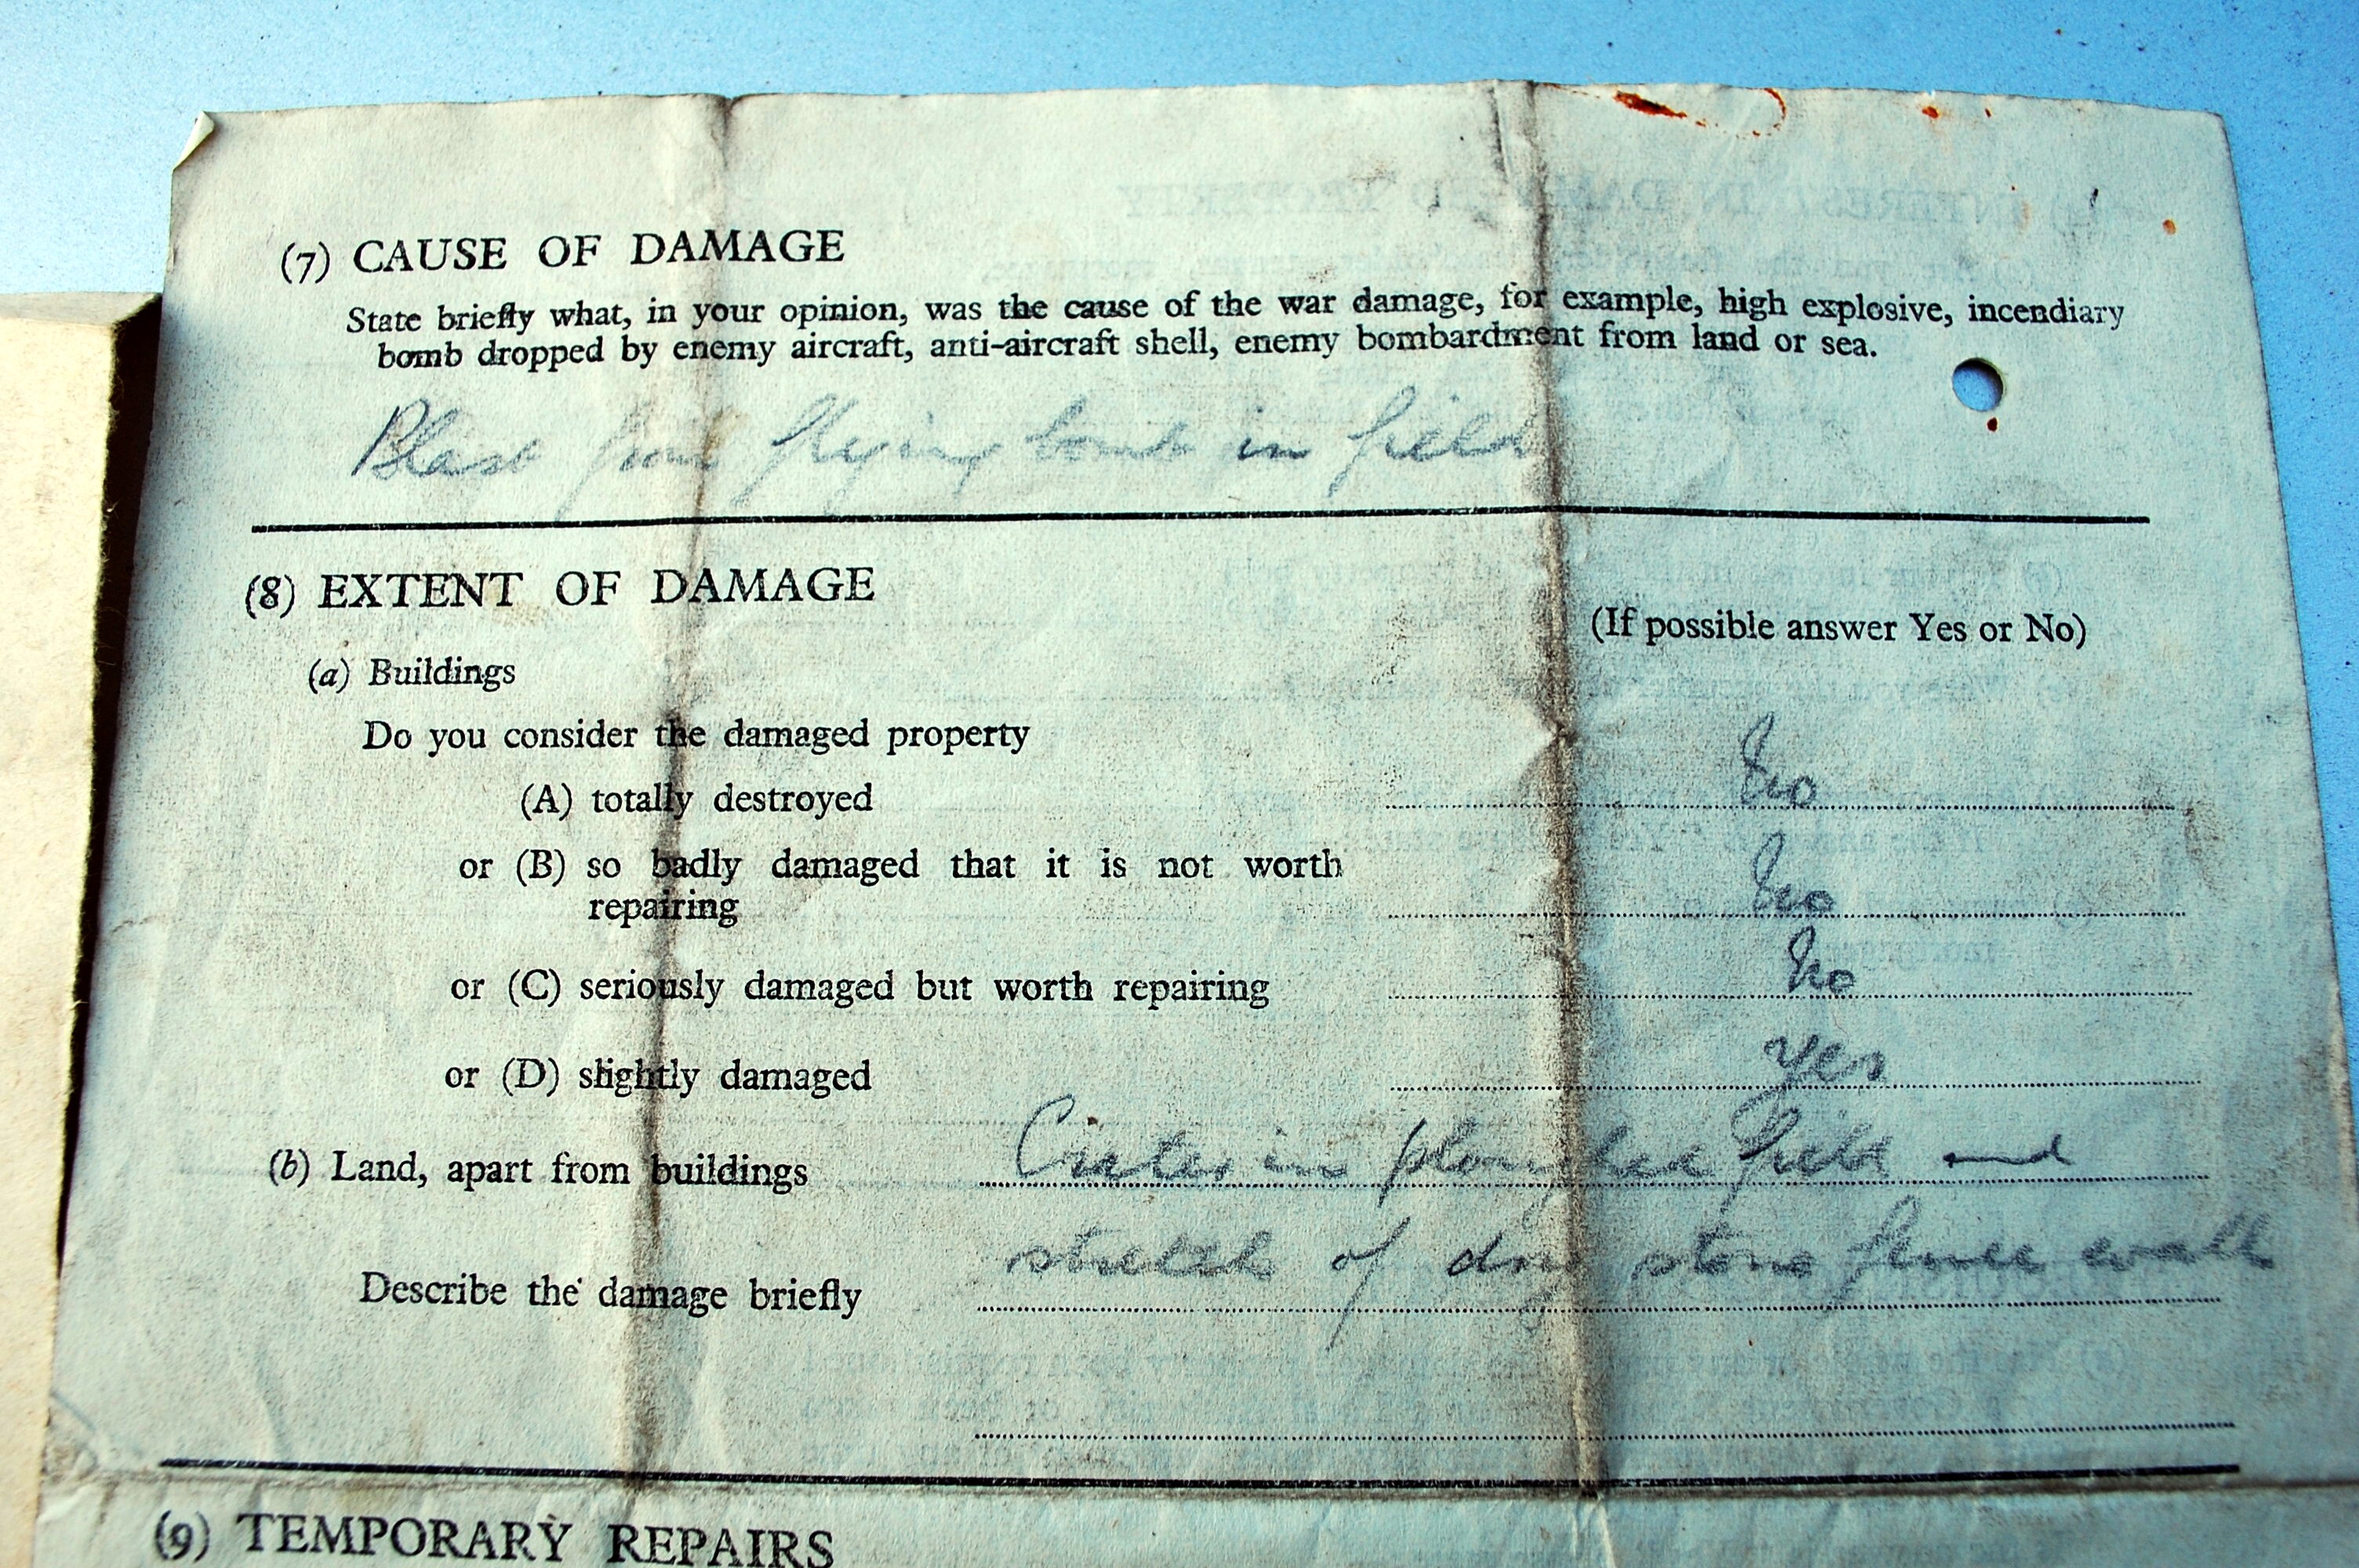 (7) CAUSE OF DAMAGE
State briefly what, in your opinion, was the cause of the war damage, for example, high explosive, incendiary
bomb dropped by enemy aircraft, anti-aircraft shell, enemy bombardment from land or sea.
Blast from flying bomb in field
(8) EXTENT OF DAMAGE
(If possible answer Yes or No)
(a) Buildings
Do you consider the damaged property
(A) totally destroyed No
or (B) so badly damaged that it is not worth
repairing No
or (C) seriously damaged but worth repairing No
or (D) slightly damaged yes
(b) Land, apart from buildings Crater in ploughed field and
Describe the damage briefly stretch of dry stone fence wall
(9) TEMPORARY REPAIRS